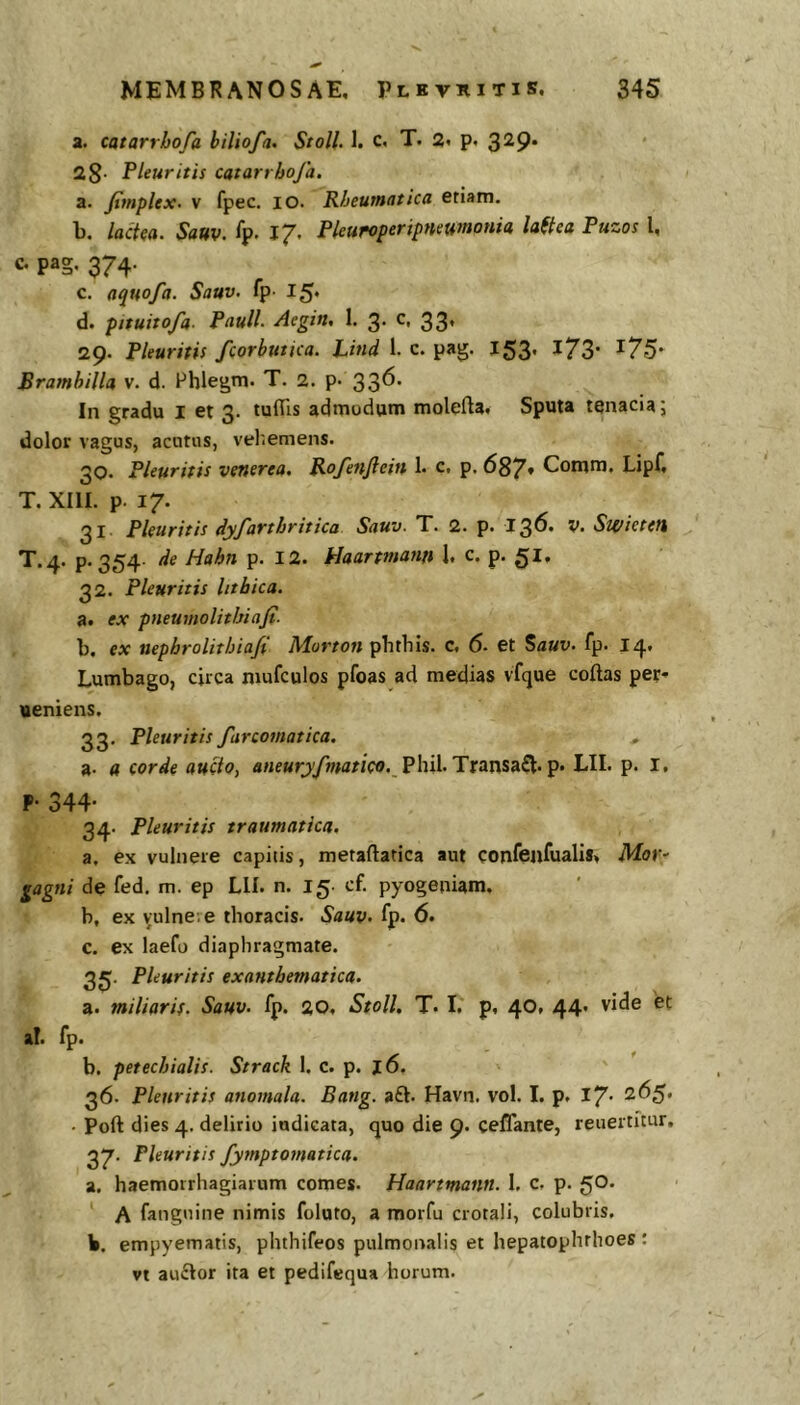 MEMBRANOSAE, PLEVRITIS. 345
a. catarrhoſa bilioſa. Stoll. l. c. T. 2. p. 329.
28. Pleuritis catarrhoſa.
a. ſimplex. v ſpec. 10. Rheumatica etiam.
b. lactea. Sauv. ſp. 17. Pleuroperipneumonia lactea Puzos l.
c. pag. 374.
c. aquoſa. Sauv. ſp. 15.
d. pituitoſa. Paull. Aegin. l. 3. c. 33.
29. Pleuritis ſcorbutica. Lind l. c. pag. 153. 173. 175.
Brambilla v. d. Phlegm. T. 2. p. 336.
In gradu 1 et 3. tuſſis admodum moleſta. Sputa tenacia;
dolor vagus, acutus, vehemens.
30. Pleuritis venerea. Roſenſtein l. c. p. 687. Comm. Lipſ.
T. XIII. p. 17.
31. Pleuritis dyſarthritica Sauv. T. 2. p. 136. v. Swieten
T. 4. p. 354. de Hahn p. 12. Haartmann l. c. p. 51.
32. Pleuritis lithica.
a. ex pneumolithiaſi.
b. ex nephrolithiaſi Morton phthis. c. 6. et Sauv. ſp. 14.
Lumbago, circa muſculos pſoas ad medias vſque coſtas per-
ueniens.
33. Pleuritis ſarcomatica.
a. a corde aucto, aneuryſmatico. Phil. Transact. p. LII. p. 1.
p. 344.
34. Pleuritis traumatica.
a. ex vulnere capitis, metaſtatica aut conſenſualis, Mor-
gagni de ſed. m. ep LII. n. 15. cf. pyogeniam.
b. ex vulnere thoracis. Sauv. ſp. 6.
c. ex laeſo diaphragmate.
35. Pleuritis exanthematica.
a. miliaris. Sauv. ſp. 20. Stoll. T. I. p. 40, 44. vide et
al. ſp.
b. petechialis. Strack l. c. p. 16.
36. Pleuritis anomala. Bang. act. Havn. vol. I. p. 17. 265.
Poſt dies 4. delirio indicata, quo die 9. ceſſante, reuertitur.
37. Pleuritis ſymptomatica.
a. haemorrhagiarum comes. Haartmann. l. c. p. 50.
A ſanguine nimis ſoluto, a morſu crotali, colubris.
b. empyematis, phthiſeos pulmonalis et hepatophthoes:
vt auctor ita et pediſequa horum.